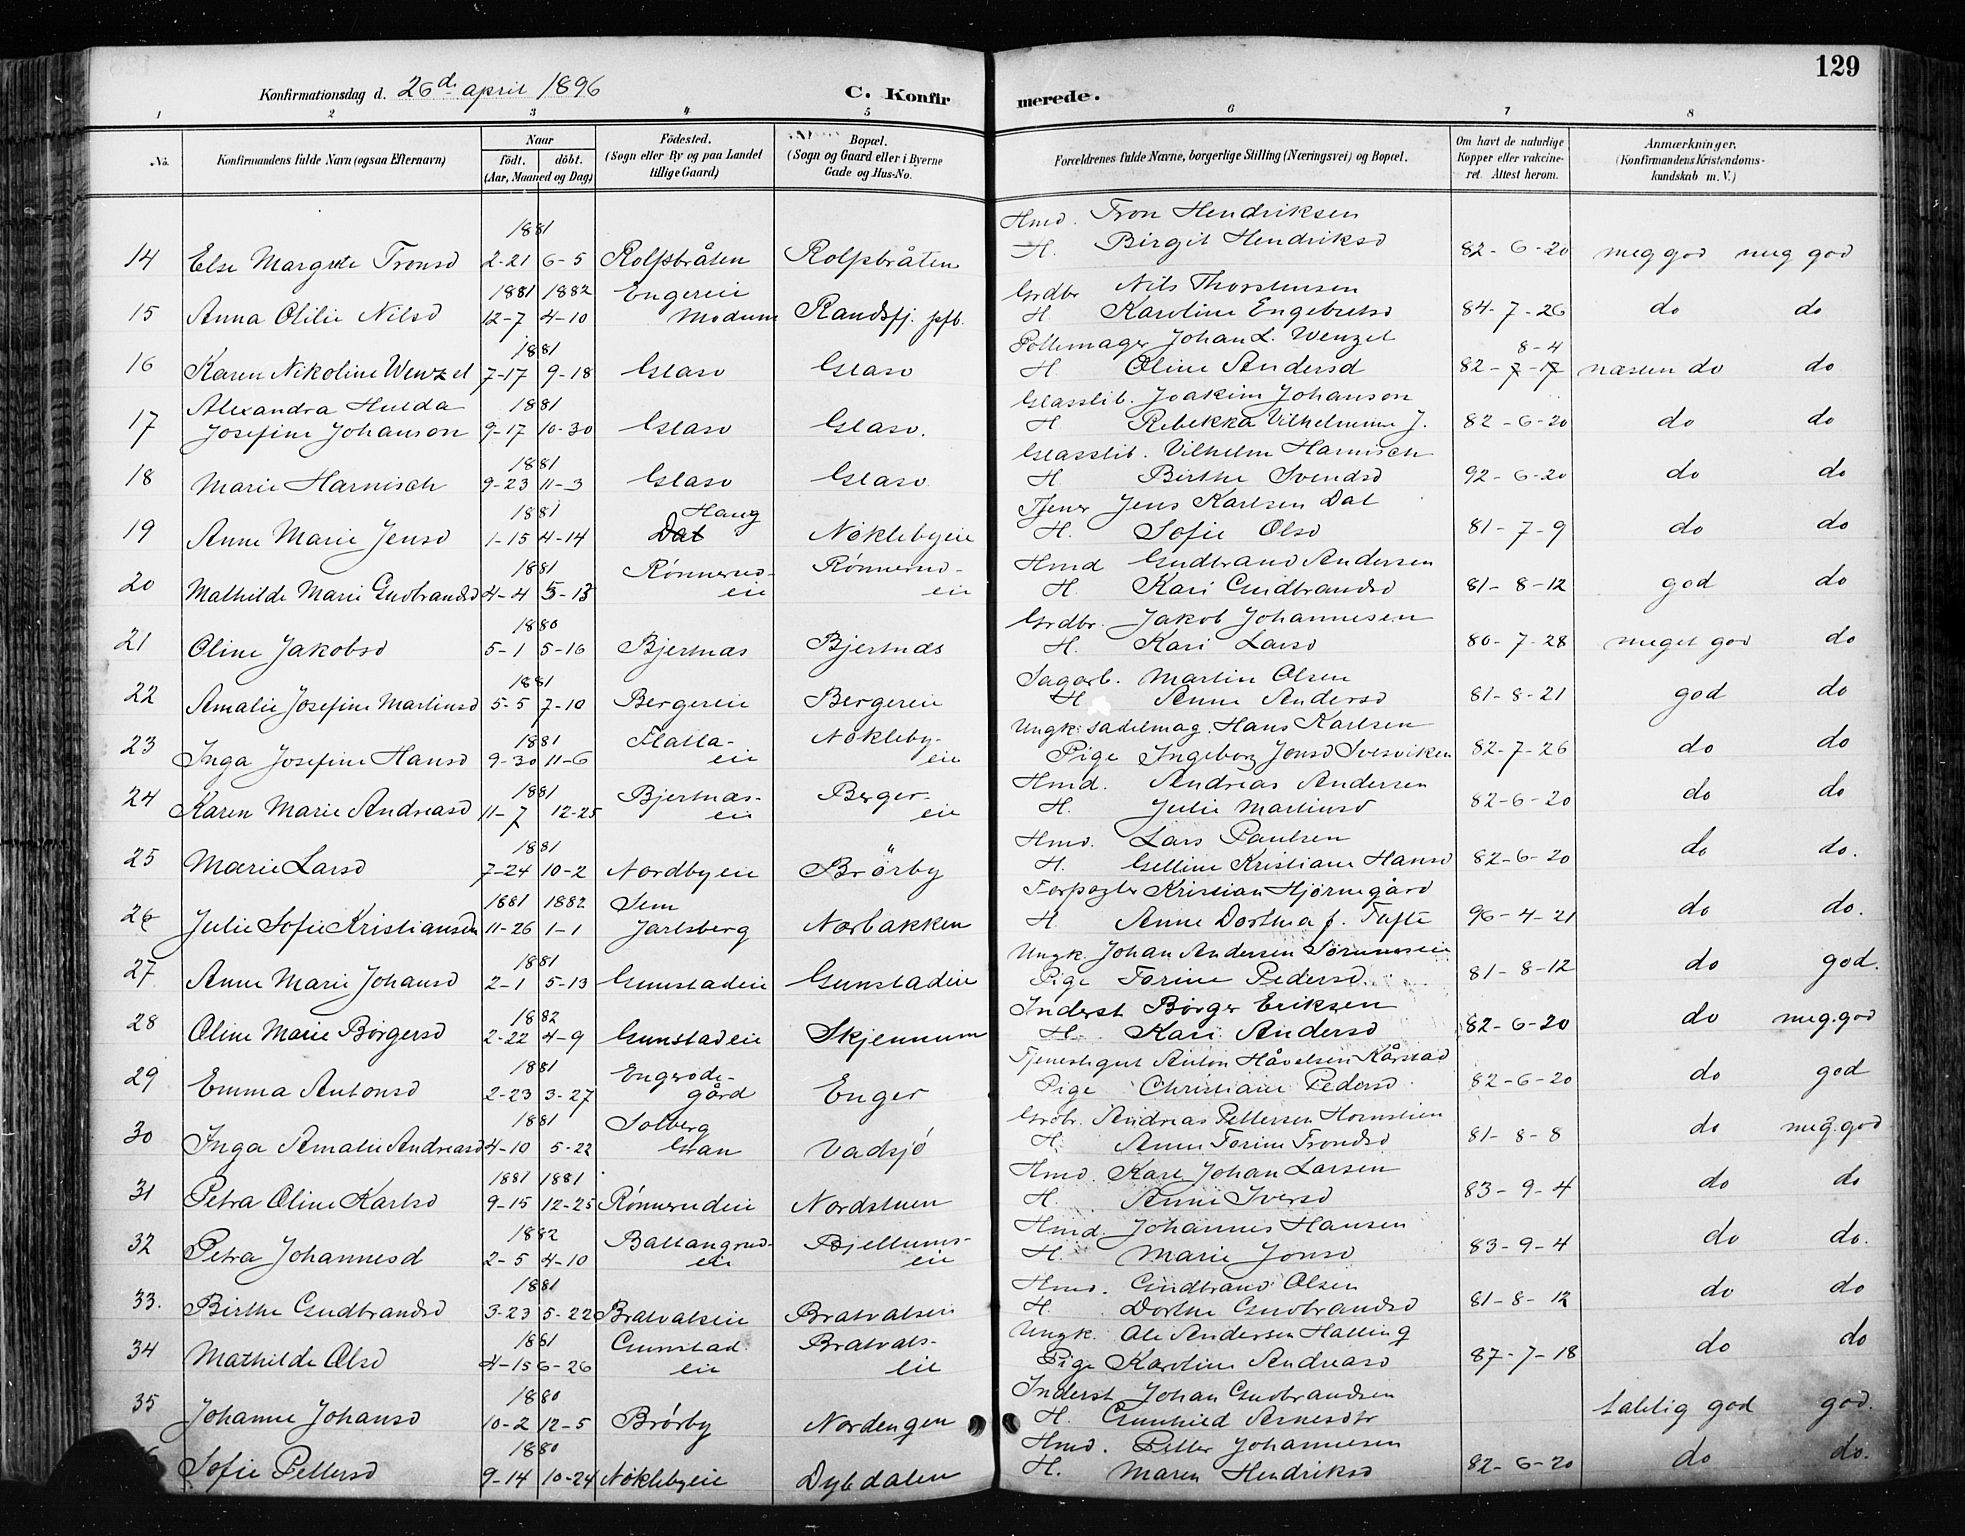 129
Konfirmationsdag d. 26de april 1896 C. Konfir merede.
1 2 3 4 5 6 7 8
No. Konfirmandens fulde Navn (ogsaa Efternavn) Naar födt. döbt. (Aar, Maaned og Dag) Födested. (Sogn eller By og paa Landet tillige Gaard) Bopæl. (Sogn og Gaard eller i Byerne Gade og Hus-No. Forældrenes fulde Navne, borgerlige Stilling (Næringsvei) og Bopæl. Om havt de naturlige Kopper eller vakcineret. Attest herom. Anmærkninger. (Konfirmandens Kristendomskundskab m. V.)
1881 Hmd. Tron Hendriksen
14 Else Margrete Tronsd 2-21 6-5 Rolfsbråten Rolfsbråten H. Birgit Hendriksd 82-6-20 meg god meg god
1881 1882 Engereie Grdbr Nils Thorstensen
15 Anna Otilie Nilsd 12-7 4-10 Modum Randsfj. pfb. H Karoline Engebretsd 84-7-26 do do
1881 Pottemager Johan L. Wenzel 8-4
16 Karen Nikoline Wenzel 7-17 9-18 Glasv Glasv H Oline Andersd 82-7-17 næsten do do
Alexandra Hulda 1881 Glasslib. Joakim Johanson
17 Josefine Johanson 9-17 10-30 Glasv Glasv. H Rebekka Vilhelmine J. 82-6-20 do do
1881 Glasslib. Vilhelm Harnisch
18 Marie Harnisch 9-23 11-3 Glasv Glasv H Birthe Svendsd 92-6-20 do do
1881 Haug Tjener Jens Karlsen Dal
19 Anne Marie Jensd 1-15 4-14 Dal Nøklebyeie H. Sofie Olsd 81-7-9 do do
1881 Rønnerud- Rønnerud- Hmd Gudbrand Andersen
20 Mathilde Marie Gudbrandsd 4-4 5-15 eie eie H. Kari Gudbrandsd 81-8-12 god do
1880 Grdbr. Jakob Johannesen
21 Oline Jakobsd 5-1 5-16 Bjertnæs Bjertnæs H. Kari Larsd 80-7-28 meget god do
1881 Sagarb. Martin Olsen
22 Amalie Josefine Martinsd 5-5 7-10 Bergereie Bergereie H Anne Andersd 81-8-21 god do
1881 Flatla- Nøkleby- Ungk. sadelmag. Hans Karlsen
23 Inga Josefine Hansd 9-30 11-6 eie eie Pige Ingeborg Jonsd Svesviken 82-7-26 do do
1881 Bjertnæs- Berger- Hmd. Andreas Andersen
24 Karen Marie Andreasd 11-7 12-25 eie eie H. Julie Martinsd 82-6-20 do do
1881 Hmd. Lars Paulsen
25 Marie Larsd 7-24 10-2 Nordbyeie Brørby H. Gelline Kristiane Hansd 82-6-20 do do.
1881 1882 Sem Forpagter Kristian Hjørnegård
26 Julie Sofie Kristiansen 11-26 1-1 Jarlsberg Norbakken H. Anne Dorthea f. Tufte 96-4-21 do do.
1881 Ungk. Johan Andersen Sørumseie
27 Anne Marie Johansd 2-1 5-13 Gunstadeie Gunstadeie Pige Torine Pedersd 81-8-12 do god.
1882 Inderst Børger Eriksen
28 Oline Marie Børgersd 2-22 4-9 Gunstadeie Skjennum H. Kari Andersd 82-6-20 do meg. god
1881 Engerøde- Tjenestegut Anton Håvelsen Kårstad
29 Emma Antonsd 2-23 3-27 gård Enger Pige Christiane Pedersd 82-6-20 do god
1881 Solberg Grdbr. Andreas Pettersen Hornslien
30 Inga Amalie Andreasd 4-10 5-22 Gran Vadsjø H. Anne Torine Trondsd 81-8-8 do meg. god
1881 1881 Hmd. Karl Johan Larsen
31 Petra Oline Karlsd 9-15 12-25 Rønnerudeie Nordstuen H. Anne Iversd 83-9-4 do do
1882 Ballangrud- Bjellums- Hmd. Johannes Hansen
32 Petra Johannesd 2-5 4-10 eie eie H. Marie Jonsd 83-9-4 do do.
1881 Hmd. Gudbrand Olsen
33. Birthe Gudbrandsd 3-23 5-22 Bratvalseie Bratvalseie H. Dorthe Gudbrandsd 81-8-12 do do
1881 Gunstad- Bratvals- Ungk. Ole Andersen Halling
34 Mathilde Olsd 4-15 6-26 eie eie Pige Karoline Andreasd 87-7-18 do do
1880 Inderst Johan Gudbrandsen
35 Johanne Johansd 10-2 12-5 Brørby Nordengen H. Gunhild Arnesdtr talelig god god.
1880 Hmd. Petter Johannesen
6 Sofie Pettersd 9-14 10-24 Nøklebyeie Dybdalen H. Maren Hendriksd 82-6-20 do do.